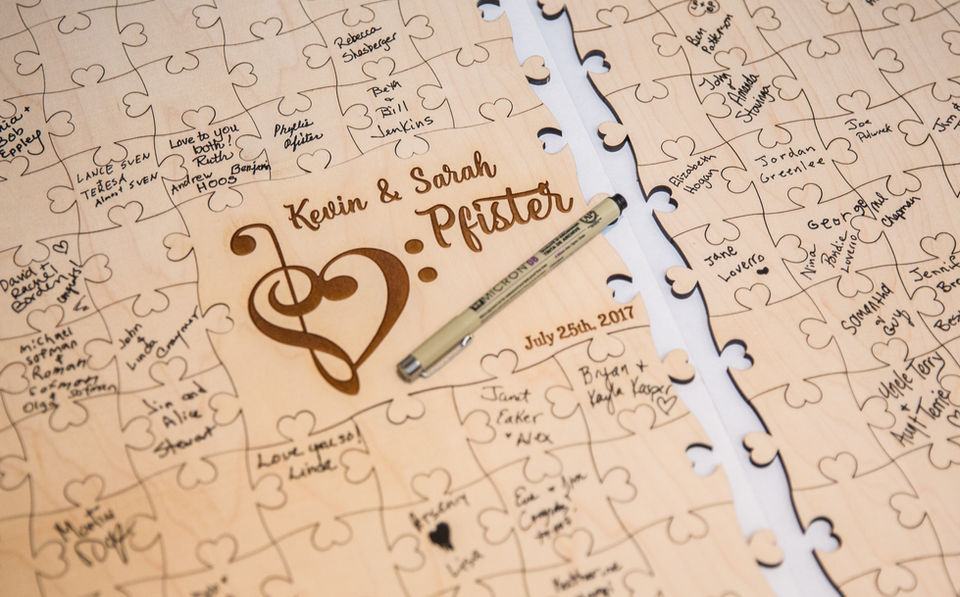 Rebecca
Shasberger
Beth
&
Bill
Jenkins
Phyllis
Pfister
Love to you
both!
Ruth
Andrew Benjamin
HOOS
LANCE SVEN
TERESA SVEN
Bob
Eppley
Kevin & Sarah
Pfister
July 25th, 2017
MICRON 08
David
Rachel
Michael
Sofman
&
Roman
Sofman
Olga Sofman
John
&
Linda
Jim and
Alice
Stewart
Love you so!
Linda
Janet
Eaker
+ Alex
Bryan +
Kayla Kasper
Martin
Arseniy
Lisa
Eva +
Katherine
Ben
Patterson
John
&
Amanda
Elizabeth
Hogan
Jordan
Greenlee
Joe
Jim &
Jane
Loverro
George
Nina Loverro
Chapman
Samantha
&
Guy
Uncle Terry
+
Aunt Terrie